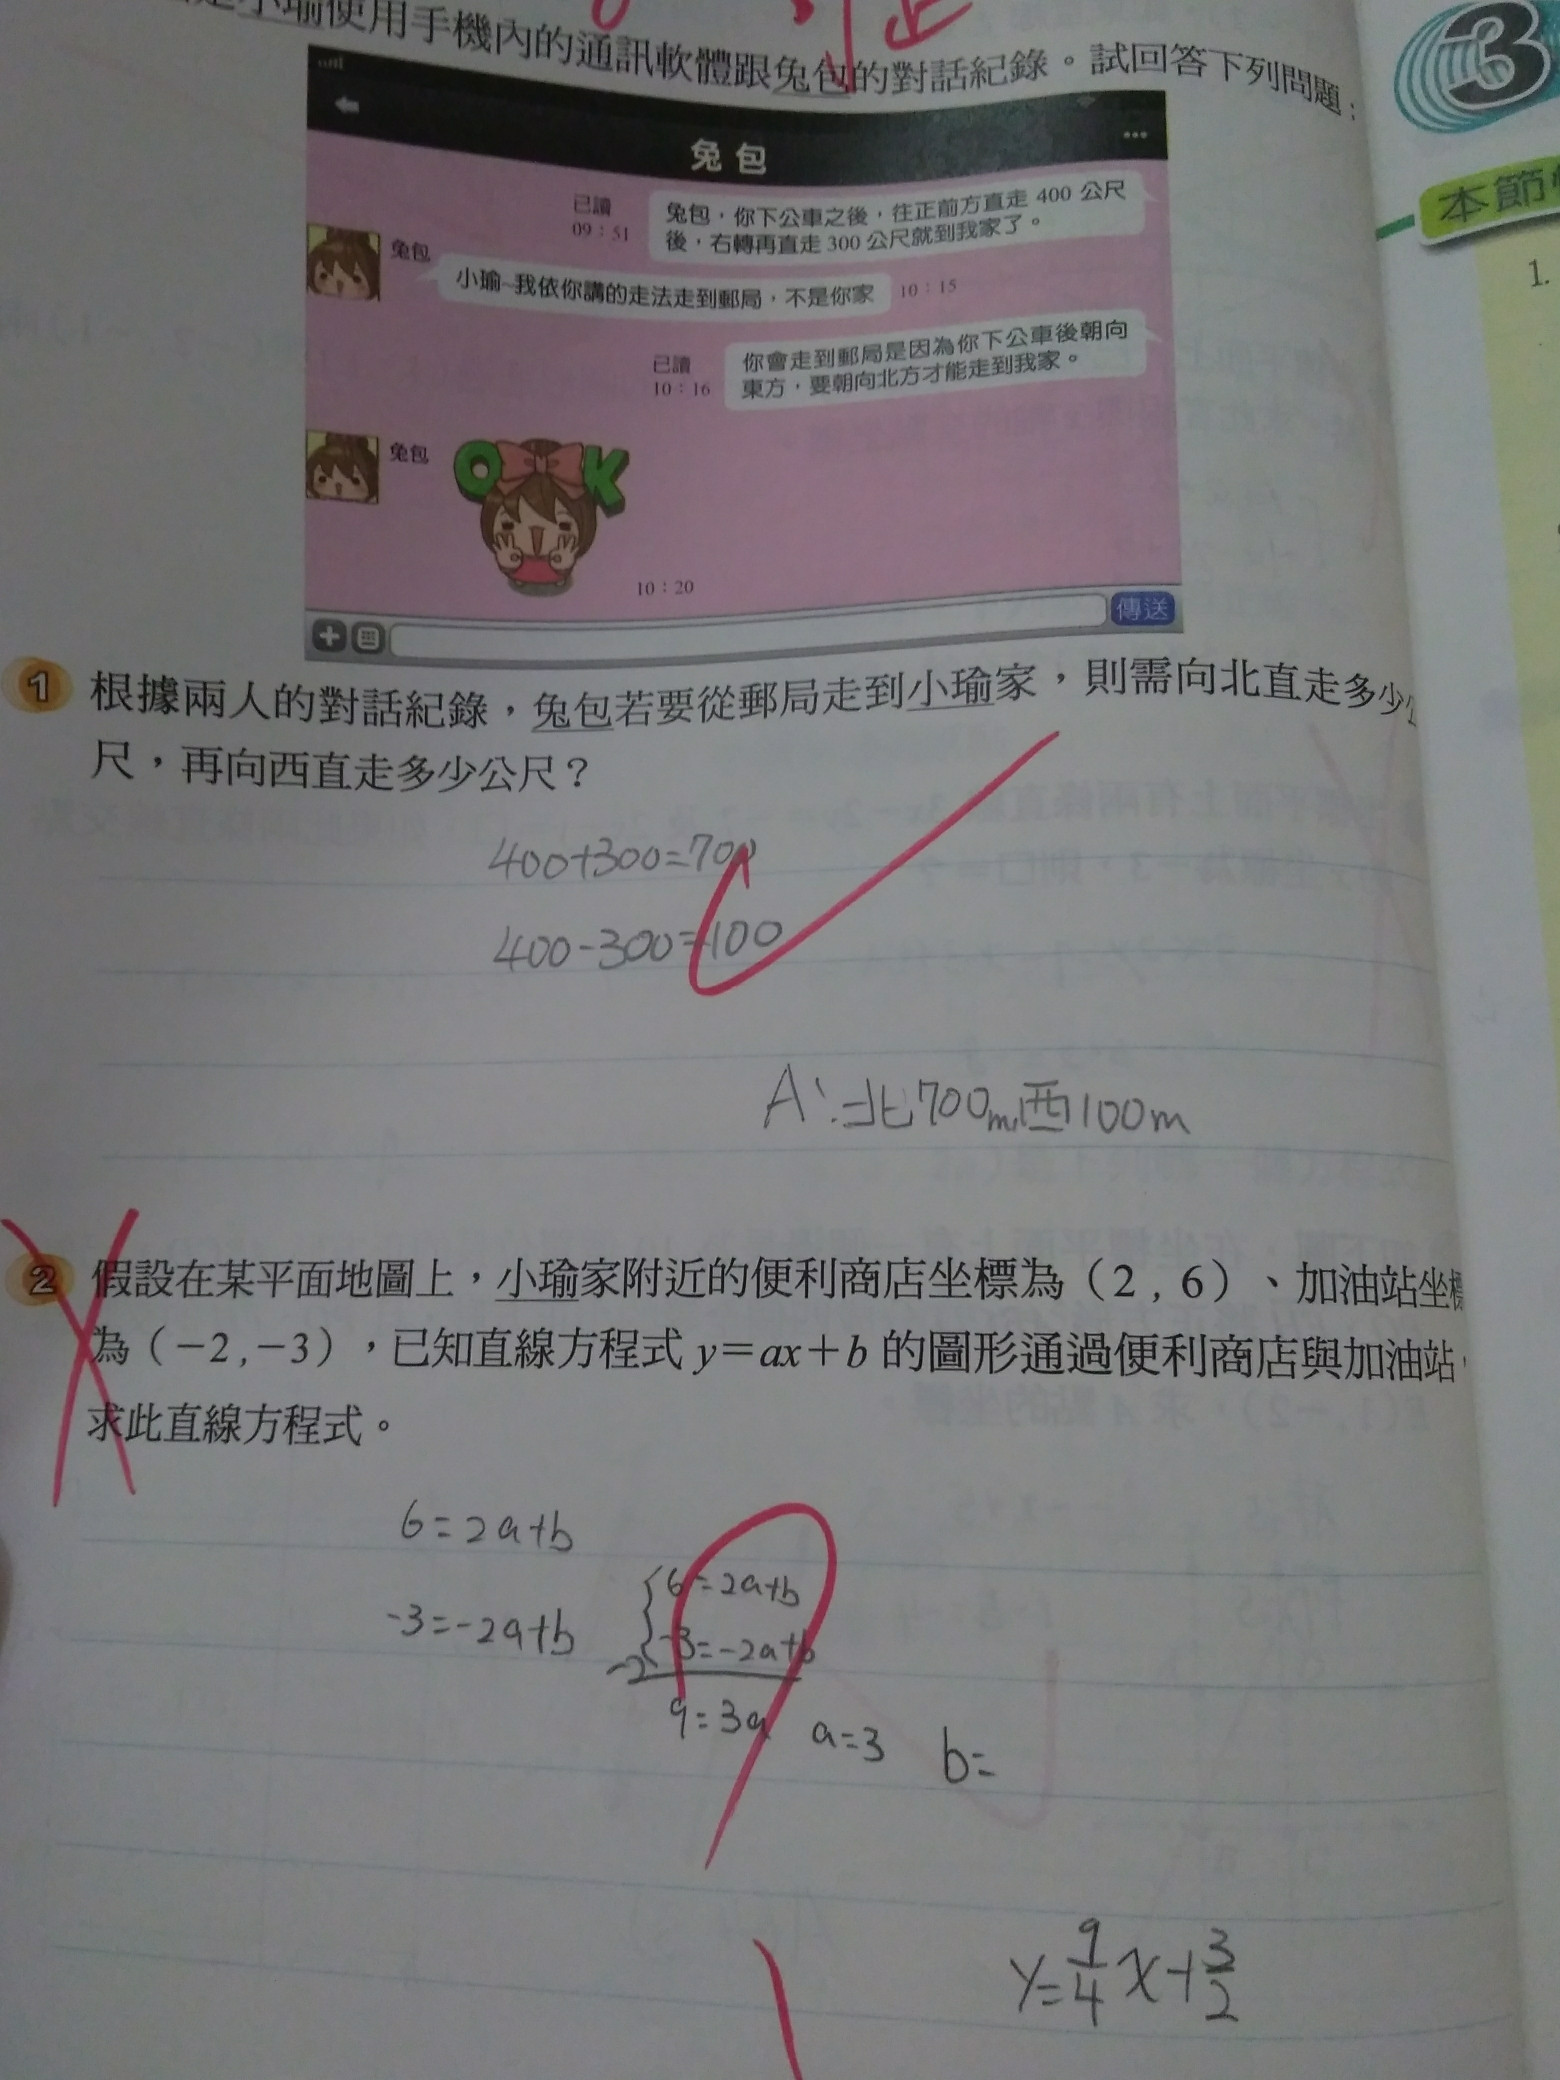 小瑜使用手機內的通訊軟體跟兔包的對話紀錄。試回答下列問題:
3
兔包
本節
已讀
09:51
兔包,你下公車之後,往正前方直走 400 公尺
後,右轉再直走 300 公尺就到我家了。
兔包
小瑜~我依你講的走法走到郵局,不是你家
10:15
1.
已讀
10:16
你會走到郵局是因為你下公車後朝向
東方,要朝向北方才能走到我家。
兔包
OK
10:20
傳送
1 根據兩人的對話紀錄,兔包若要從郵局走到小瑜家,則需向北直走多少公
尺,再向西直走多少公尺?
400+300=700
400-300=100
A:北700m,西100m
2 假設在某平面地圖上,小瑜家附近的便利商店坐標為(2,6)、加油站坐標
為(-2,-3),已知直線方程式 y=ax+b 的圖形通過便利商店與加油站,
求此直線方程式。
6=2a+b
-3=-2a+b
6=2a+b
-3=-2a+b
9=3a a=3 b=
y=9/4x+3/2